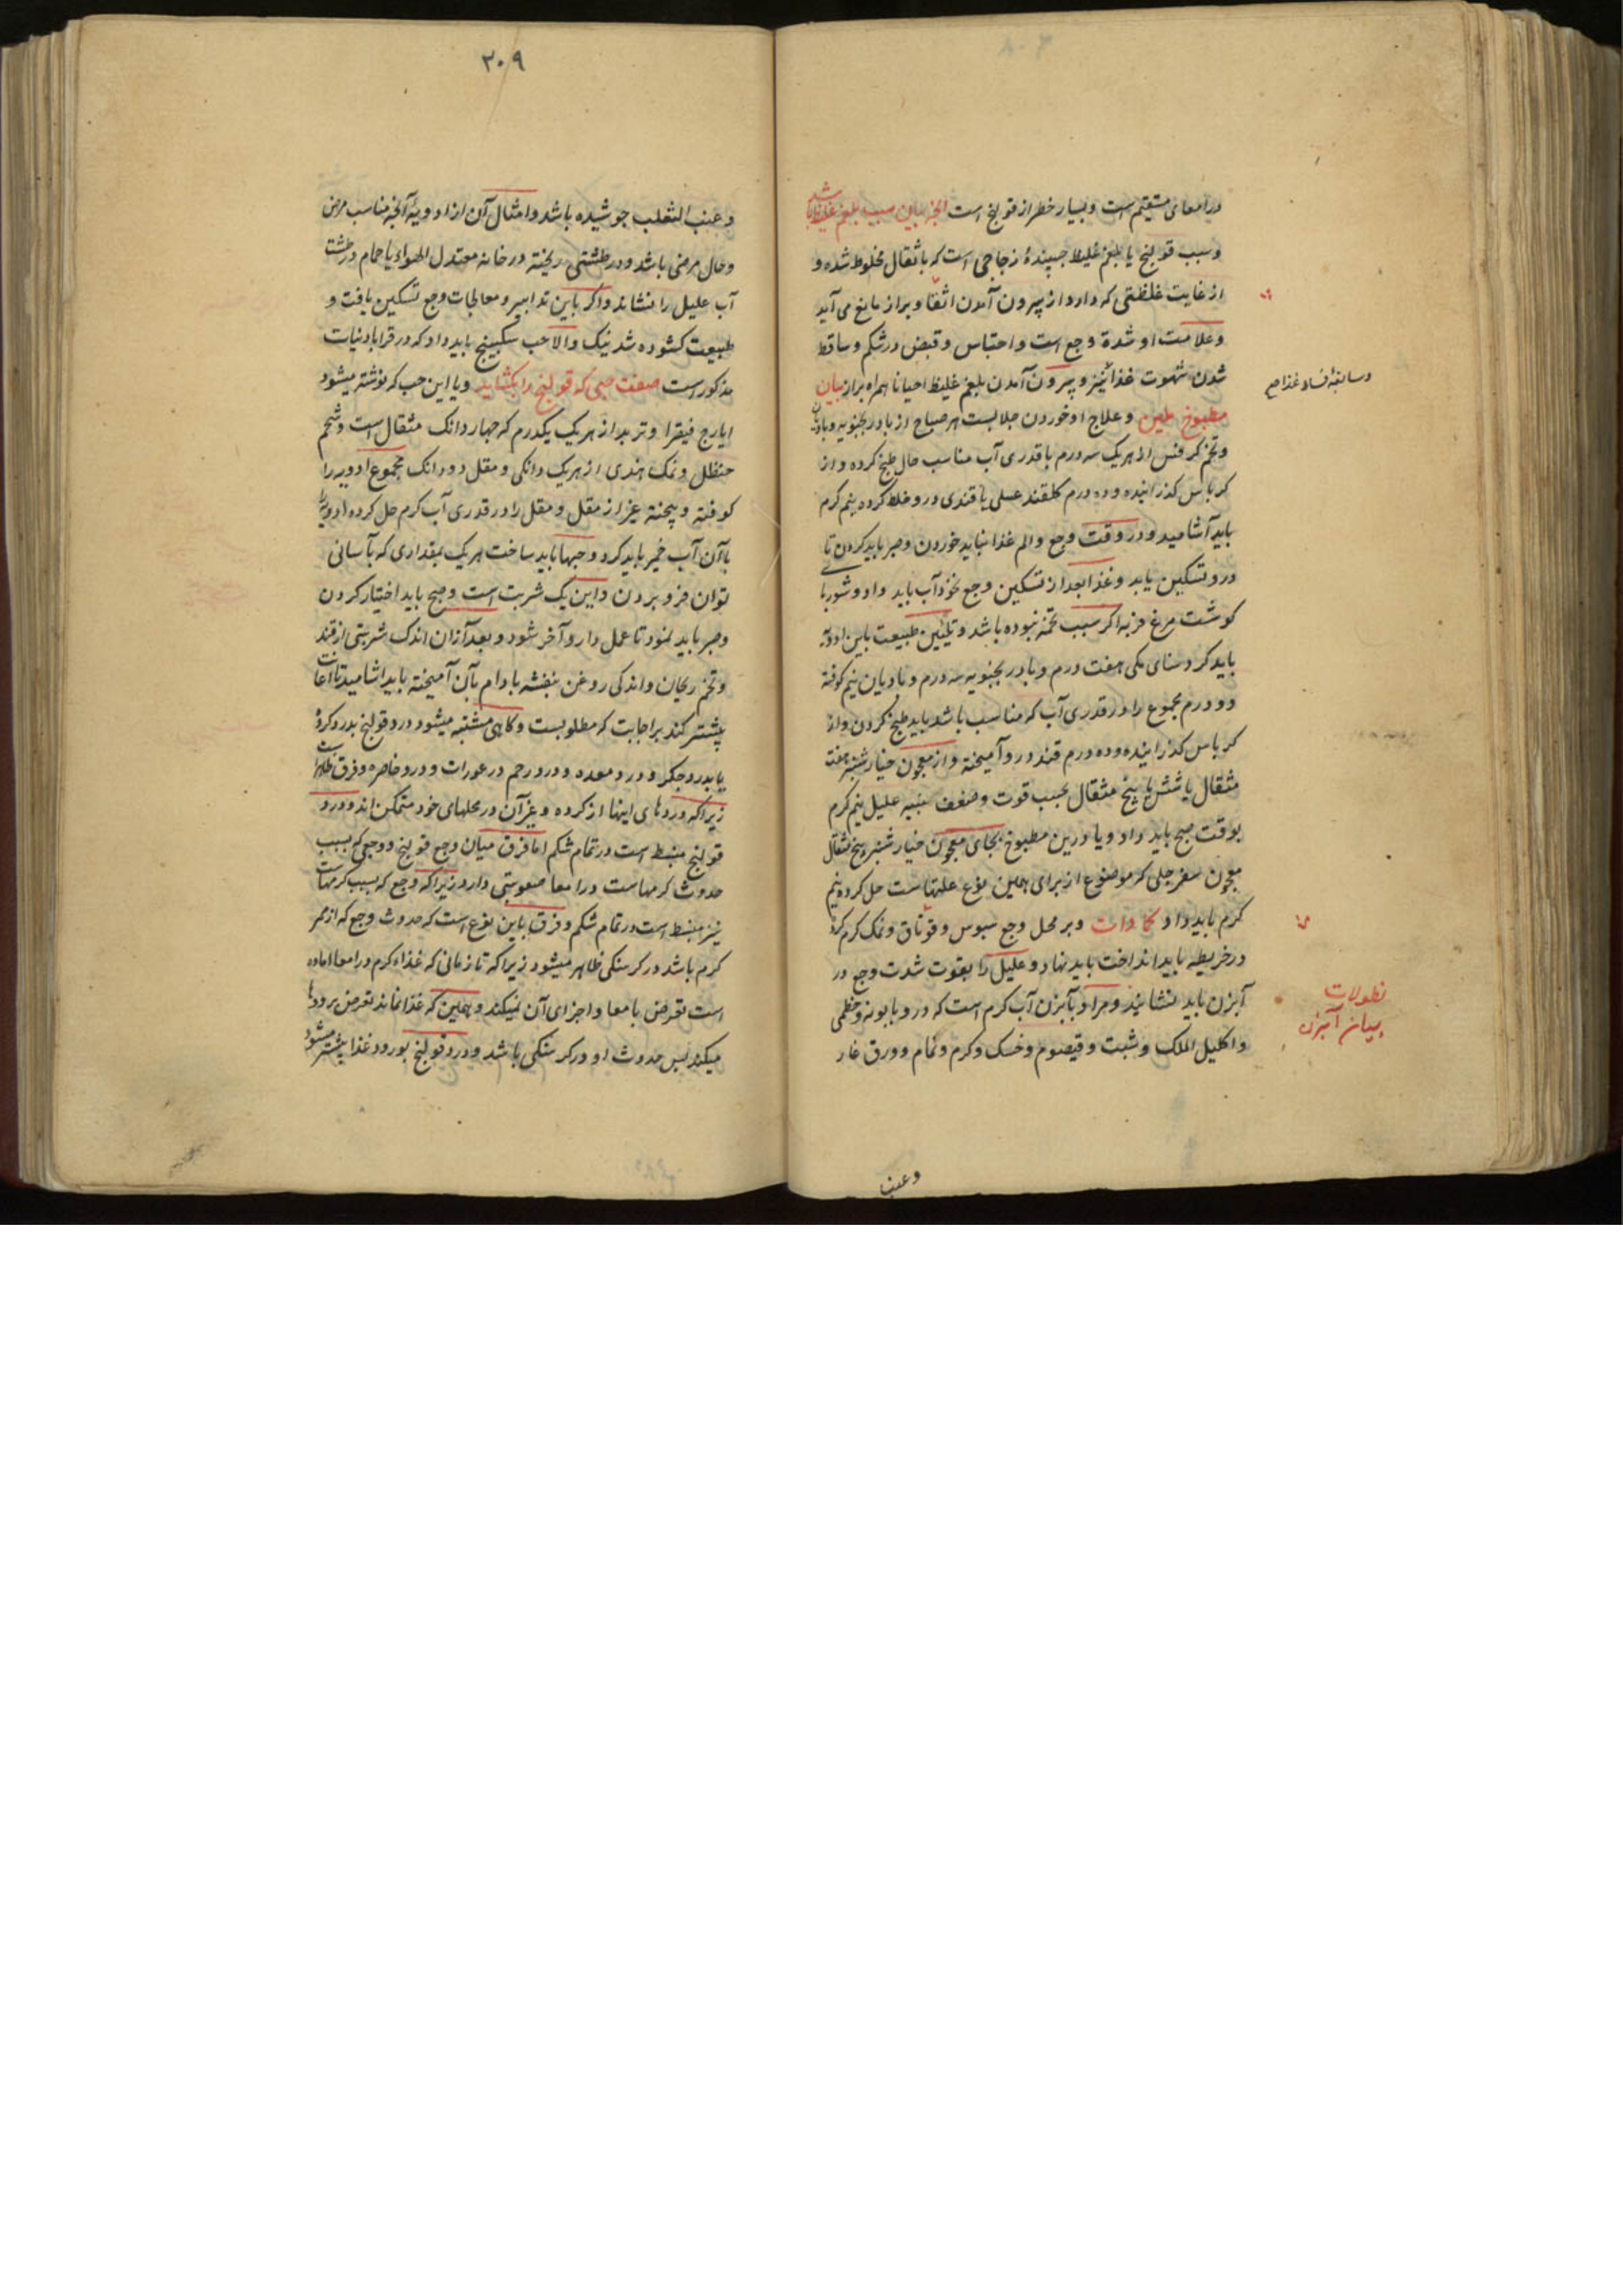 در امعای مستقیم است و بسیار خطر از قولنج است الخ بیان سبب بلغم غلیظ باشد
و سبب قولنج یا بلغم غلیظ چسپندهٔ زجاجی است که باثقال مخلوط شده و
از غایت غلظتی که دارد از بیرون آمدن اثقال و براز مانع می آید
و علامت او شدة وجع است و احتباس و قبض در شکم و ساقط
شدن شهوت غذا نیز و بیرون آمدن بلغم غلیظ احیانا همراه براز بیان
وسابقهٔ افساد غذا صح
مطبوخ ملین و علاج او خوردن جلابست هر صباح از بادرنجبویه و بادیان
و تخم کرفس از هریک سه درم باقدری آب مناسب حال طبخ کرده و از
کرباس کذرانیده و ده درم کلقند عسلی یا قندی درو خلط کرده نیم کرم
باید آشامید و در وقت وجع و الم غذا نباید خوردن و صبر باید کردن تا
درد تسکین یابد و غذا بعد از تسکین وجع نخوداب باید داد و شوربا
کوشت مرغ فربه اکر سبب تخمه نبوده باشد و تلئین طبیعت باین ادویه
باید کرد سنای مکی هفت درم و بادرنجبویه سه درم و بادیان نیم کوفته
دو درم مجموع را در قدری آب که مناسب باشد باید طبخ کردن و از
کرباس کذرانیده و ده درم قند درو آمیخته و از معجون خیارشنبر هفت
مثقال یا شش یا پنج مثقال بحسب قوت و ضعف بنیه علیل نیم کرم
بوقت صبح باید داد و یا درین مطبوخ بجای معجون خیارشنبر پنج مثقال
معجون سفرجلی که موضوع از برای همین نوع علتهاست حل کرده نیم
کرم باید داد کمادات و بر محل وجع سبوس و قوناق و نمک کرم کرده
در خریطه باید انداخت باید نهاد و علیل را بقوت شدت وجع در
نطولات
آبزن باید نشانید و مراد بآبزن آب کرم است که درو بابونه و خطمی
بیان آبزن
و اکلیل الملک و شبت و قیصوم و خسک و کرم و نمام و ورق غار
وعنب
۳۰۹
و عنب الثعلب جوشیده باشد و امثال آن از ادویهٔ آنچه مناسب مرض
و حال مرض باشد و در طشتی ریخته در خانه معتدل الهواء یا حمام در طشت
آب علیل را نشاند و اکر باین تدابیر و معالجات وجع تسکین یافت و
طبیعت کشوده شد نیک و الا حب سکبینج باید داد که در قرابادنیات
مذکور است صفت حبی که قولنج را بکشاید و یا این حب که نوشته میشود
ایارج فیقرا و تربد از هریک یکدرم که چهار دانک مثقال است و شحم
حنظل و نمک هندی از هریک دانکی و مقل دو دانک مجموع ادویه را
کوفته و بیخته غیر از مقل و مقل را در قدری آب کرم حل کرده ادویه را
باآن آب خمیر باید کرد و حبها باید ساخت هریک بمقداری که بآسانی
توان فرو بردن و این یک شربت است و صبح باید اختیار کردن
و صبر باید نمود تا عمل دارو آخر شود و بعد از آن اندک شربتی از قند
و تخم ریحان و اندکی روغن بنفشه بادام بآن آمیخته باید اشامید تا اعانت
بیشتر کند بر اجابت که مطلوبست و کاهی مشتبه میشود درد قولنج بدرد کرده
یا بدرد جکر و درد معده و درد رحم در عورات و درد خاصره و فرق ظاهر است
زیرا که دردهای اینها از کرده و غیر آن در محلهای خود متمکن اند و درد
قولنج منبسط است در تمام شکم اما فرق میان وجع قولنج و وجعی که بسبب
حدوث کرمهاست در امعا صعوبتی دارد زیراکه وجع که بسبب کرمهاست
نیز منبسط است در تمام شکم و فرق باین نوع است که حدوث وجع که از ممر
کرم باشد در کرسنکی ظاهر میشود زیرا که تا زمانی که غذاء کرم در امعا اماده
است تعرض بامعا و اجزای آن نمیکند و همین که غذا نماند تعرض بروده‌ا
میکند پس حدوث او در کرسنکی باشد و درد قولنج بورود غذا بیشتر میشود